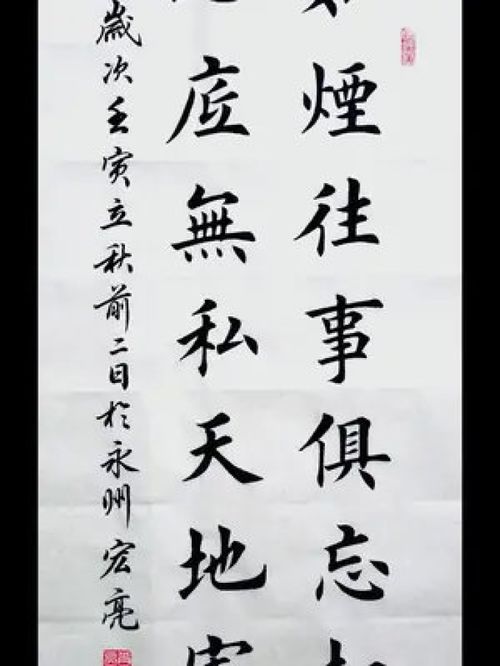 煙往事俱忘
底無私天地
歲次壬寅立秋前二日於永州宏亮